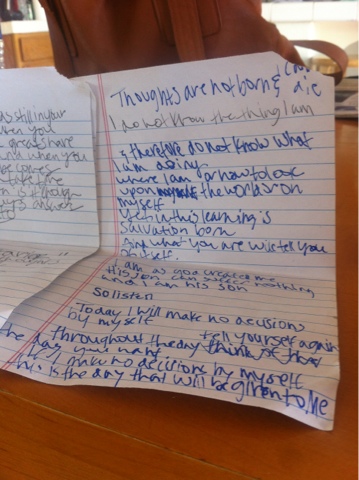 as still in your
when you
great share
and when you
answer
Thoughts are not born & can
die
I do not know the thing I am
& therefore do not know what
I am doing
where I am or how to look
upon the world or on
myself
Yet in this learning is
salvation born
And what you are will tell you
of itself.
I am as god created me
His son can suffer nothing
and I am his son
So listen
Today I will make no decisions
by myself
tell yourself again
throughout the day think of
the day you want
I make no decisions by myself
this is the day that will be given to me